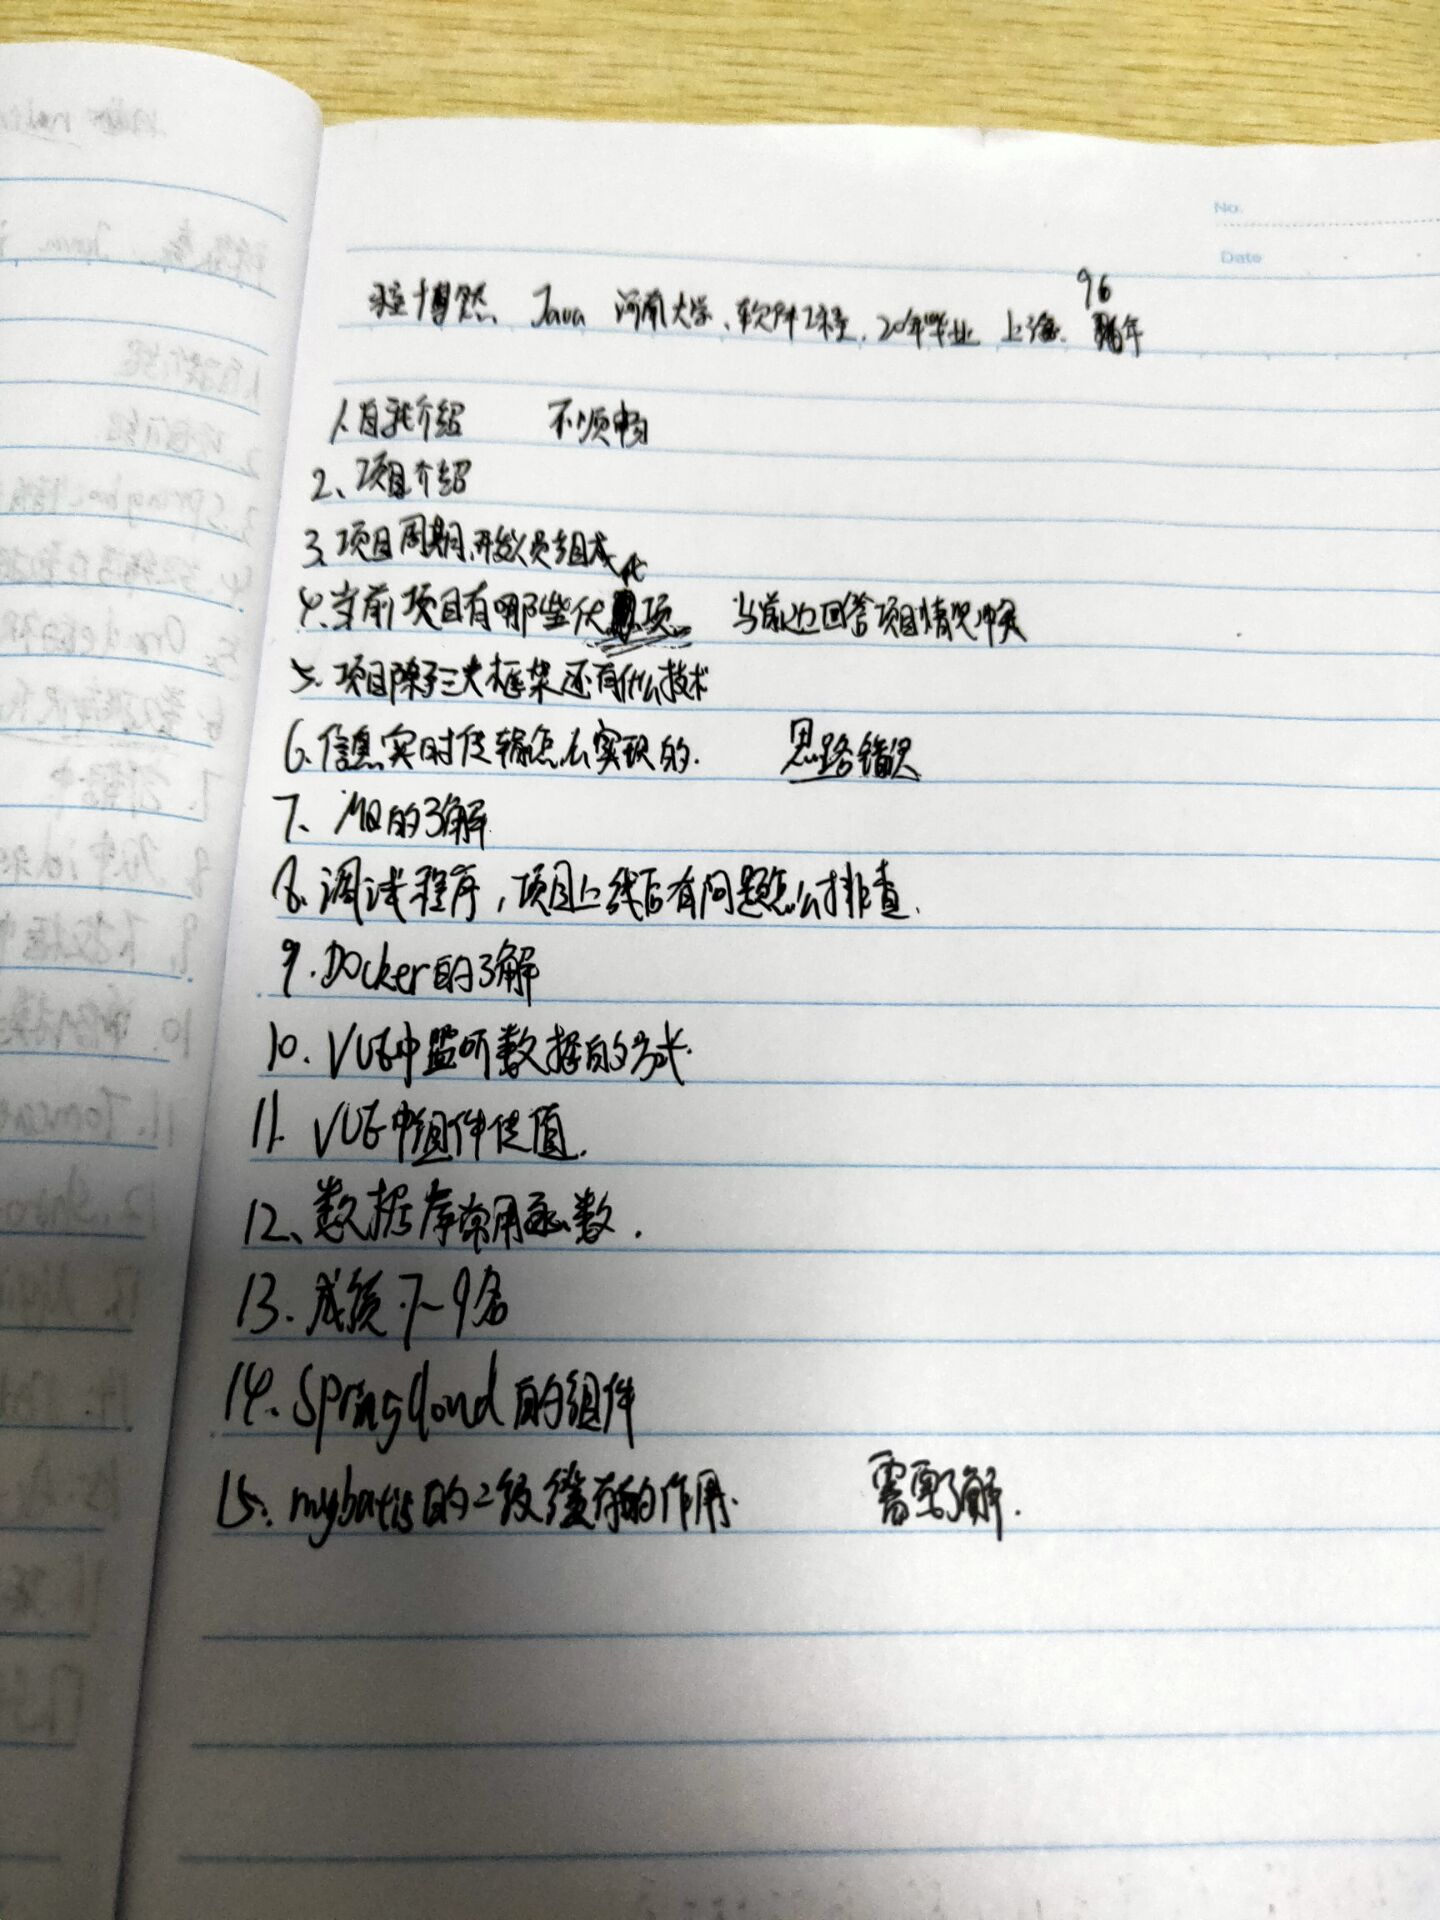 No.
Date
96
博然 Java 河南大学、软件工程, 20年毕业 上海. 年
1.自我介绍 不顺畅
2、项目介绍
3.项目周期,开发人员组成
4.当前项目有哪些优项 当前近回答项目情况冲突
5.项目除了三大框架还有什么技术
6.信息实时传输怎么实现的. 思路错误
7、MQ的了解
8.调试程序,项目上线后有问题怎么排查.
9.Docker的了解
10.VUE中监听数据的方式.
11. VUE中组件传值.
12、数据库常用函数.
13.成绩.7~9名
14.SpringCloud的组件
15.mybatis的二级缓存的作用. 需要了解.